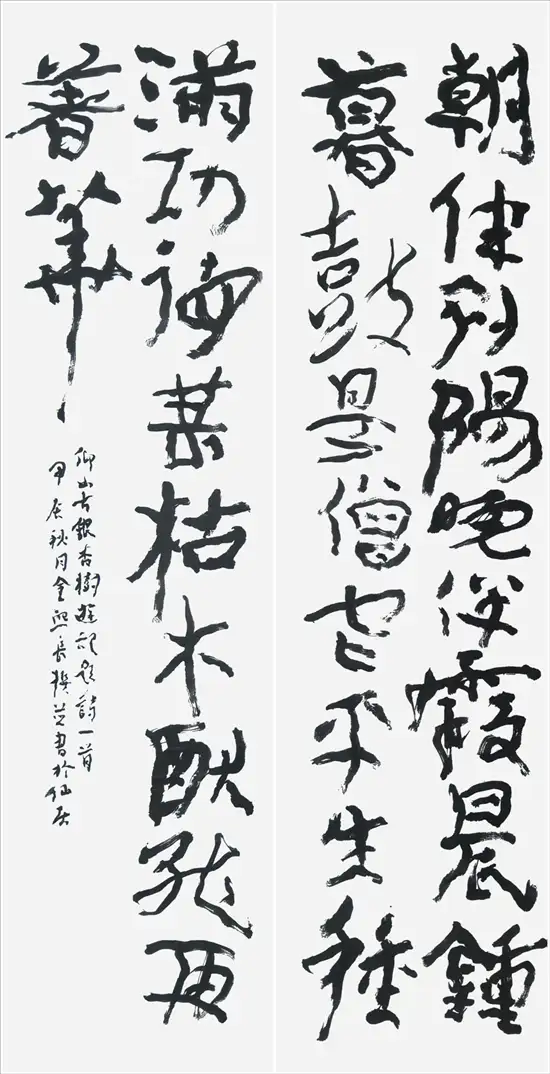 朝伴陽晚伴霞晨鐘
暮鼓是僧平生種
滿功德枯木猷能再
著華
仰山古銀杏樹遊記題詩一首
甲辰秋月金熙長撰並書於仙居